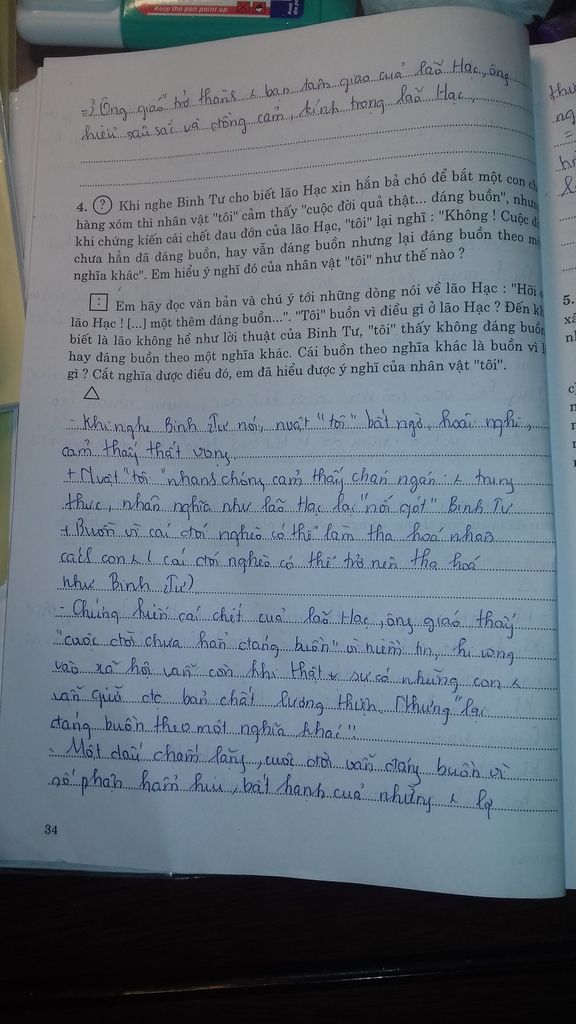 Keep the pen point up
=> Ông giáo trở thành ʌ bạn tâm giao của lão Hạc, ông
hiểu sâu sắc và đồng cảm, kính trọng lão Hạc
4. ? Khi nghe Binh Tư cho biết lão Hạc xin hắn bả chó để bắt một con
hàng xóm thì nhân vật "tôi" cảm thấy "cuộc đời quả thật... đáng buồn",
khi chứng kiến cái chết đau đớn của lão Hạc, "tôi" lại nghĩ : "Không ! Cuộc
chưa hẳn đã đáng buồn, hay vẫn đáng buồn nhưng lại đáng buồn theo
nghĩa khác". Em hiểu ý nghĩ đó của nhân vật "tôi" như thế nào ?
: Em hãy đọc văn bản và chú ý tới những dòng nói về lão Hạc : "Hỡi
lão Hạc ! [...] một thêm đáng buồn...". "Tôi" buồn vì điều gì ở lão Hạc ? Đến
biết là lão không hề như lời thuật của Binh Tư, "tôi" thấy không đáng buồn
hay đáng buồn theo một nghĩa khác. Cái buồn theo nghĩa khác là buồn vì
gì ? Cắt nghĩa được điều đó, em đã hiểu được ý nghĩ của nhân vật "tôi".
- Khi nghe Binh Tư nói, nvật "tôi" bất ngờ, hoài nghi,
cảm thấy thất vọng
+ Nvật "tôi" nhanh chóng cảm thấy chán ngán : ʌ trung
thực, nhân nghĩa như lão Hạc lại "nối gót" Binh Tư
+ Buồn vì cái đói nghèo có thể làm tha hoá nhân
cách con ʌ ( cái đói nghèo có thể trở nên tha hoá
như Binh Tư)
- Chứng kiến cái chết của lão Hạc, ông giáo thấy
"cuộc đời chưa hẳn đáng buồn" vì niềm tin, hi vọng
vào xã hội vẫn còn khi thật sự có những con ʌ
vẫn giữ đc bản chất lương thiện. Nhưng "lại
đáng buồn theo một nghĩa khác"
- Một dấu chấm lặng, cuộc đời vẫn đáng buồn vì
số phận hẩm hiu, bất hạnh của những ʌ lđ
34
5.